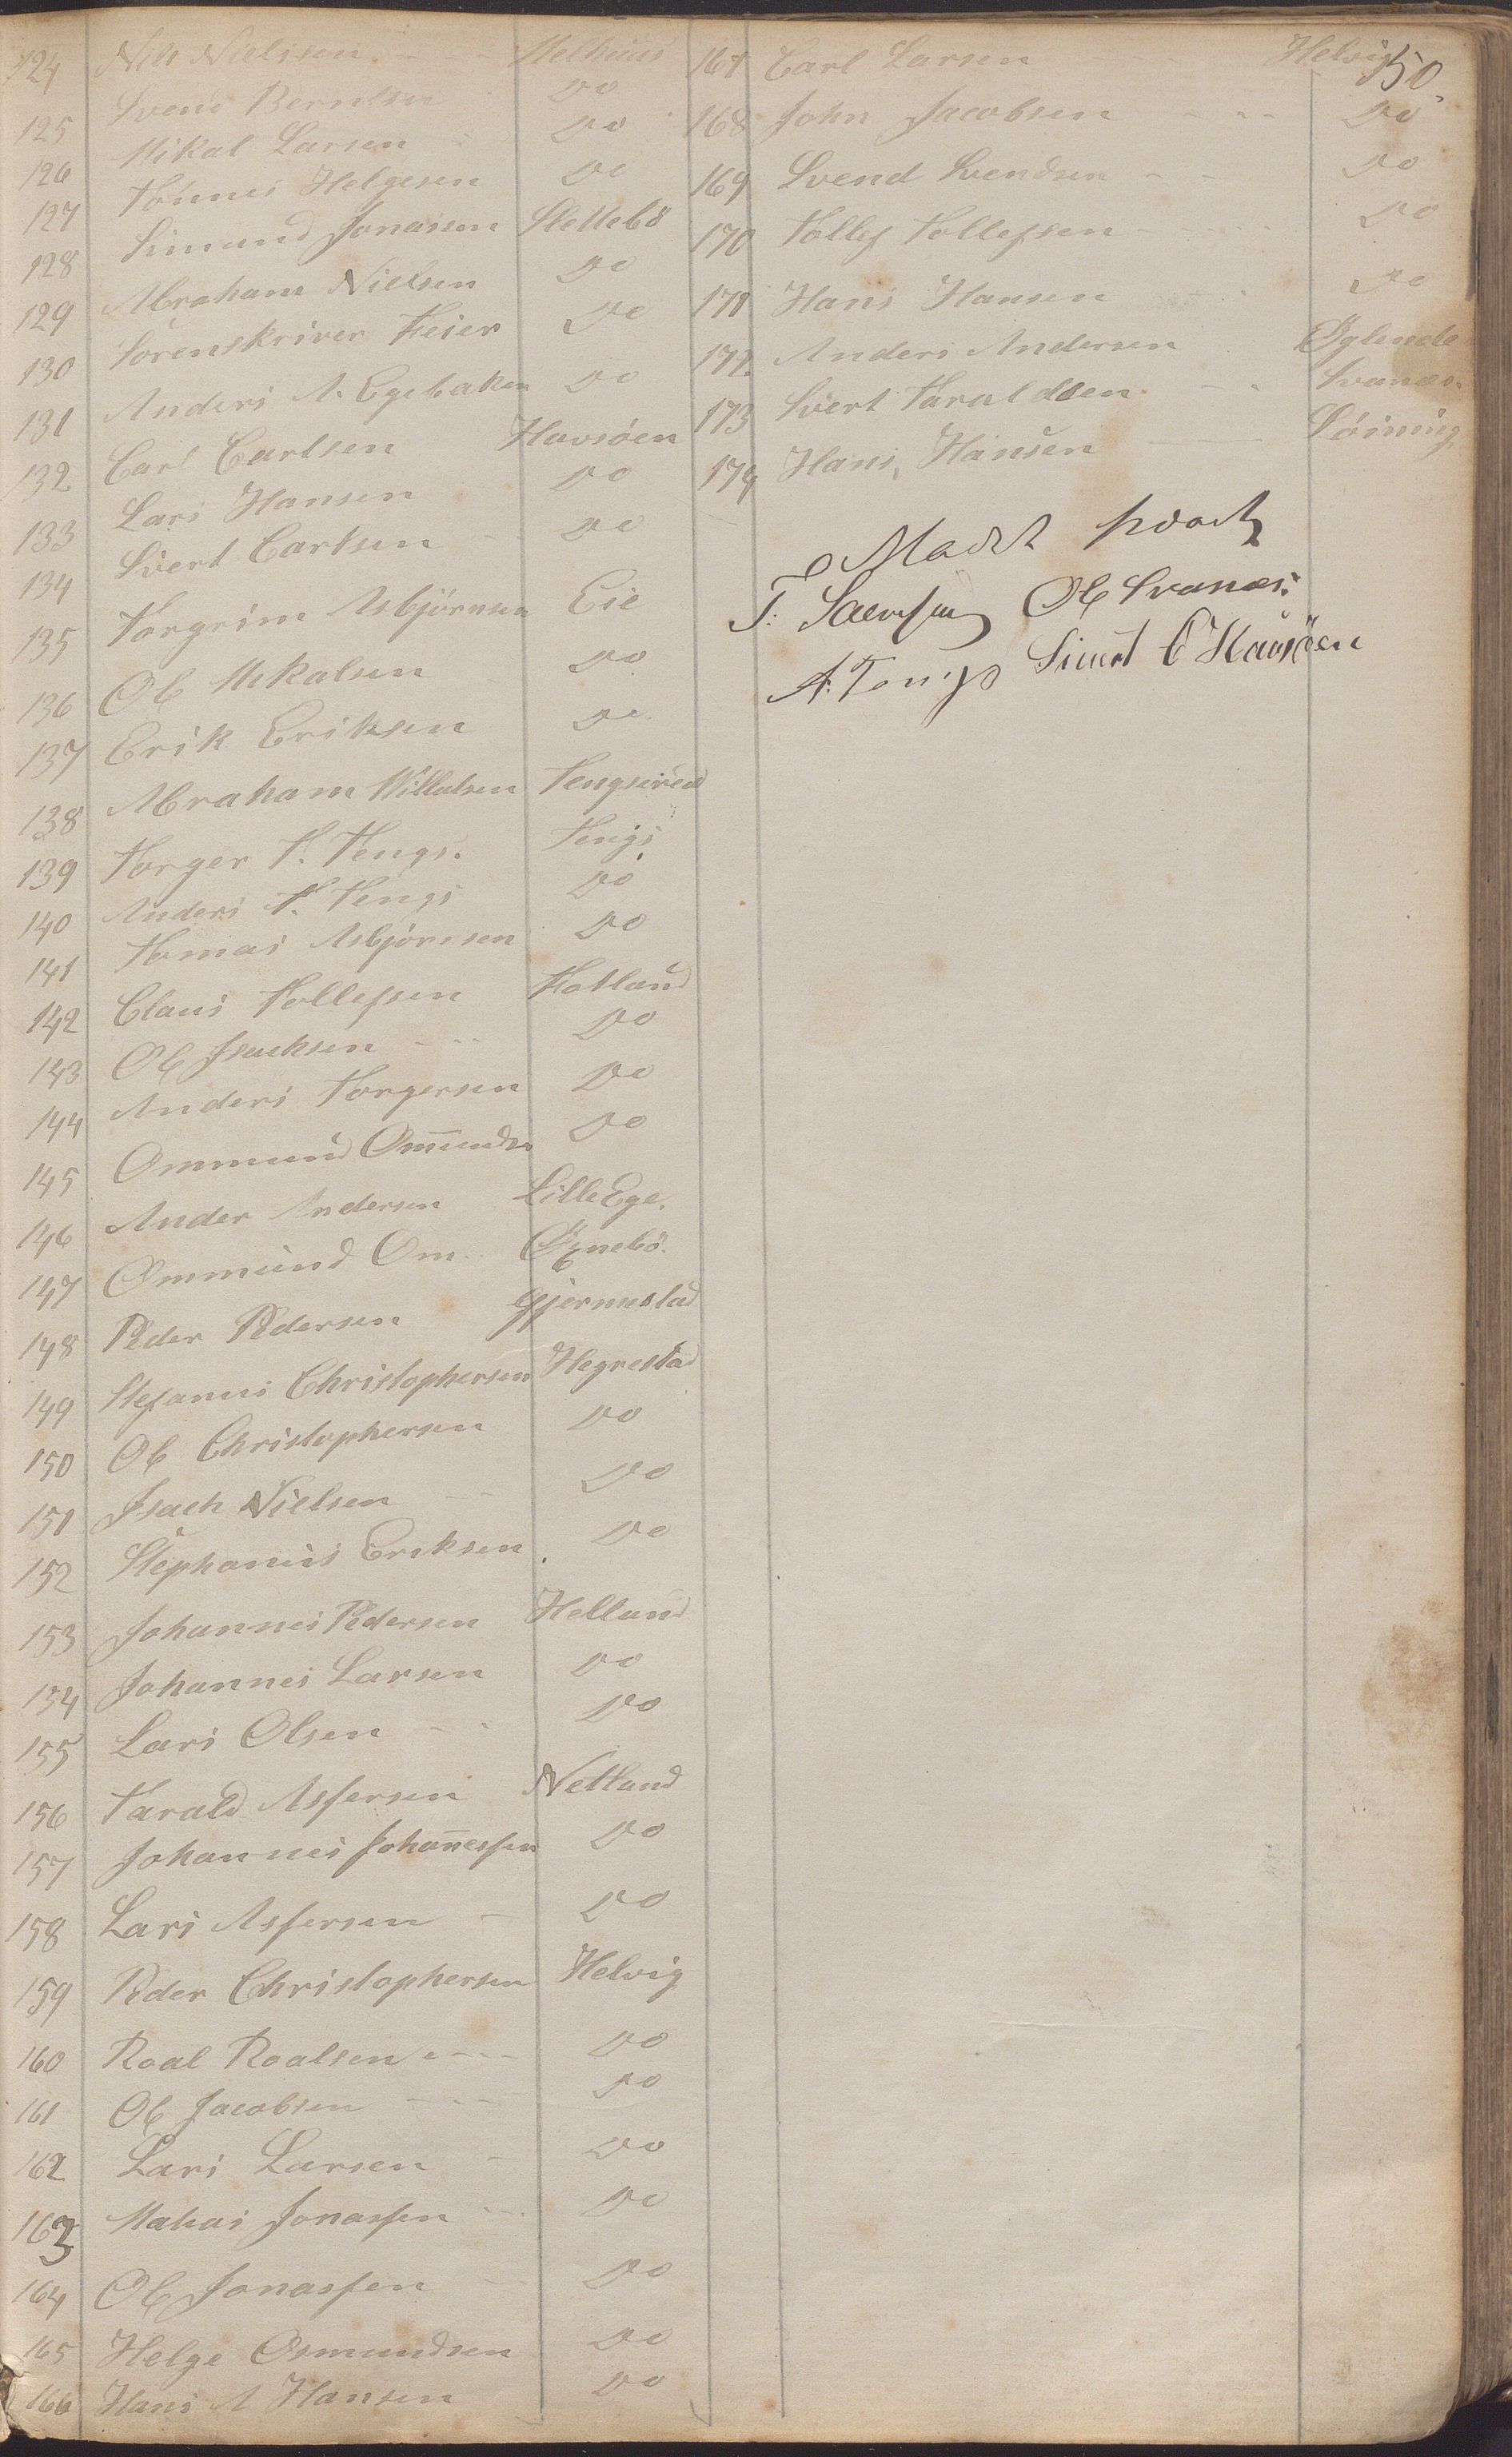 50.
124 Nils Nielsen Melhuus
125 Svend Berntsen Do
126 Mikal Larsen Do
127 Tönnes Helgesen Do
128 Simund Jonassen Slettebö
129 Abraham Nielsen Do
130 Sorenskriver Feier Do
131 Anders A. Egebaken Do
132 Carl Carlsen Havsöen
133 Lars Hansen Do
134 Sivert Carlsen Do
135 Torgrim Asbjörnsen Eie
136 Ole Mikalsen Do
137 Erik Eriksen Do
138 Abraham Willatsen Tengsereid
139 Torger T. Tengs. Tengs
140 Anders T. Tengs Do
141 Tomas Asbjörnsen Do
142 Claus Tollefsen Hotland
143 Ole Isachsen Do
144 Anders Torgersen Do
145 Ommund Om̄undsen Do
146 Ander Andersen Lille Ege.
147 Ommund Om Øgnebö.
148 Peder Pedersen Gjermestad
149 Stefanus Christophersen Hegrestad
150 Ole Christophersen Do
151 Isach Nielsen Do
152 Stephanus Eriksen Do
153 Johannes Pedersen Helland
154 Johannes Larsen Do
155 Lars Olsen Do
156 Tarald Asfersen Netland
157 Johannes Johan̄essen Do
158 Lars Asfersen Do
159 Peder Christophersen Helvig
160 Roal Roalsen Do
161 Ole Jacobsen Do
162 Lars Larsen Do
163 Mahus Jonassen Do
164 Ole Jonassen Do
165 Helge Osmundsen Do
166 Hans A Hansen Do
167 Carl Larsen Helvig
168 John Jacobsen Do
169 Svend Svendsen Do
170 Tollef Tollefsen Do
171 Hans Hansen Do
172 Anders Andersen Øglende
173 Sivert Taraldsen Svanæs.
174 Hans Hansen Löining
T. Ole Svanæs.
A. Tengs Sivert C Havsöen